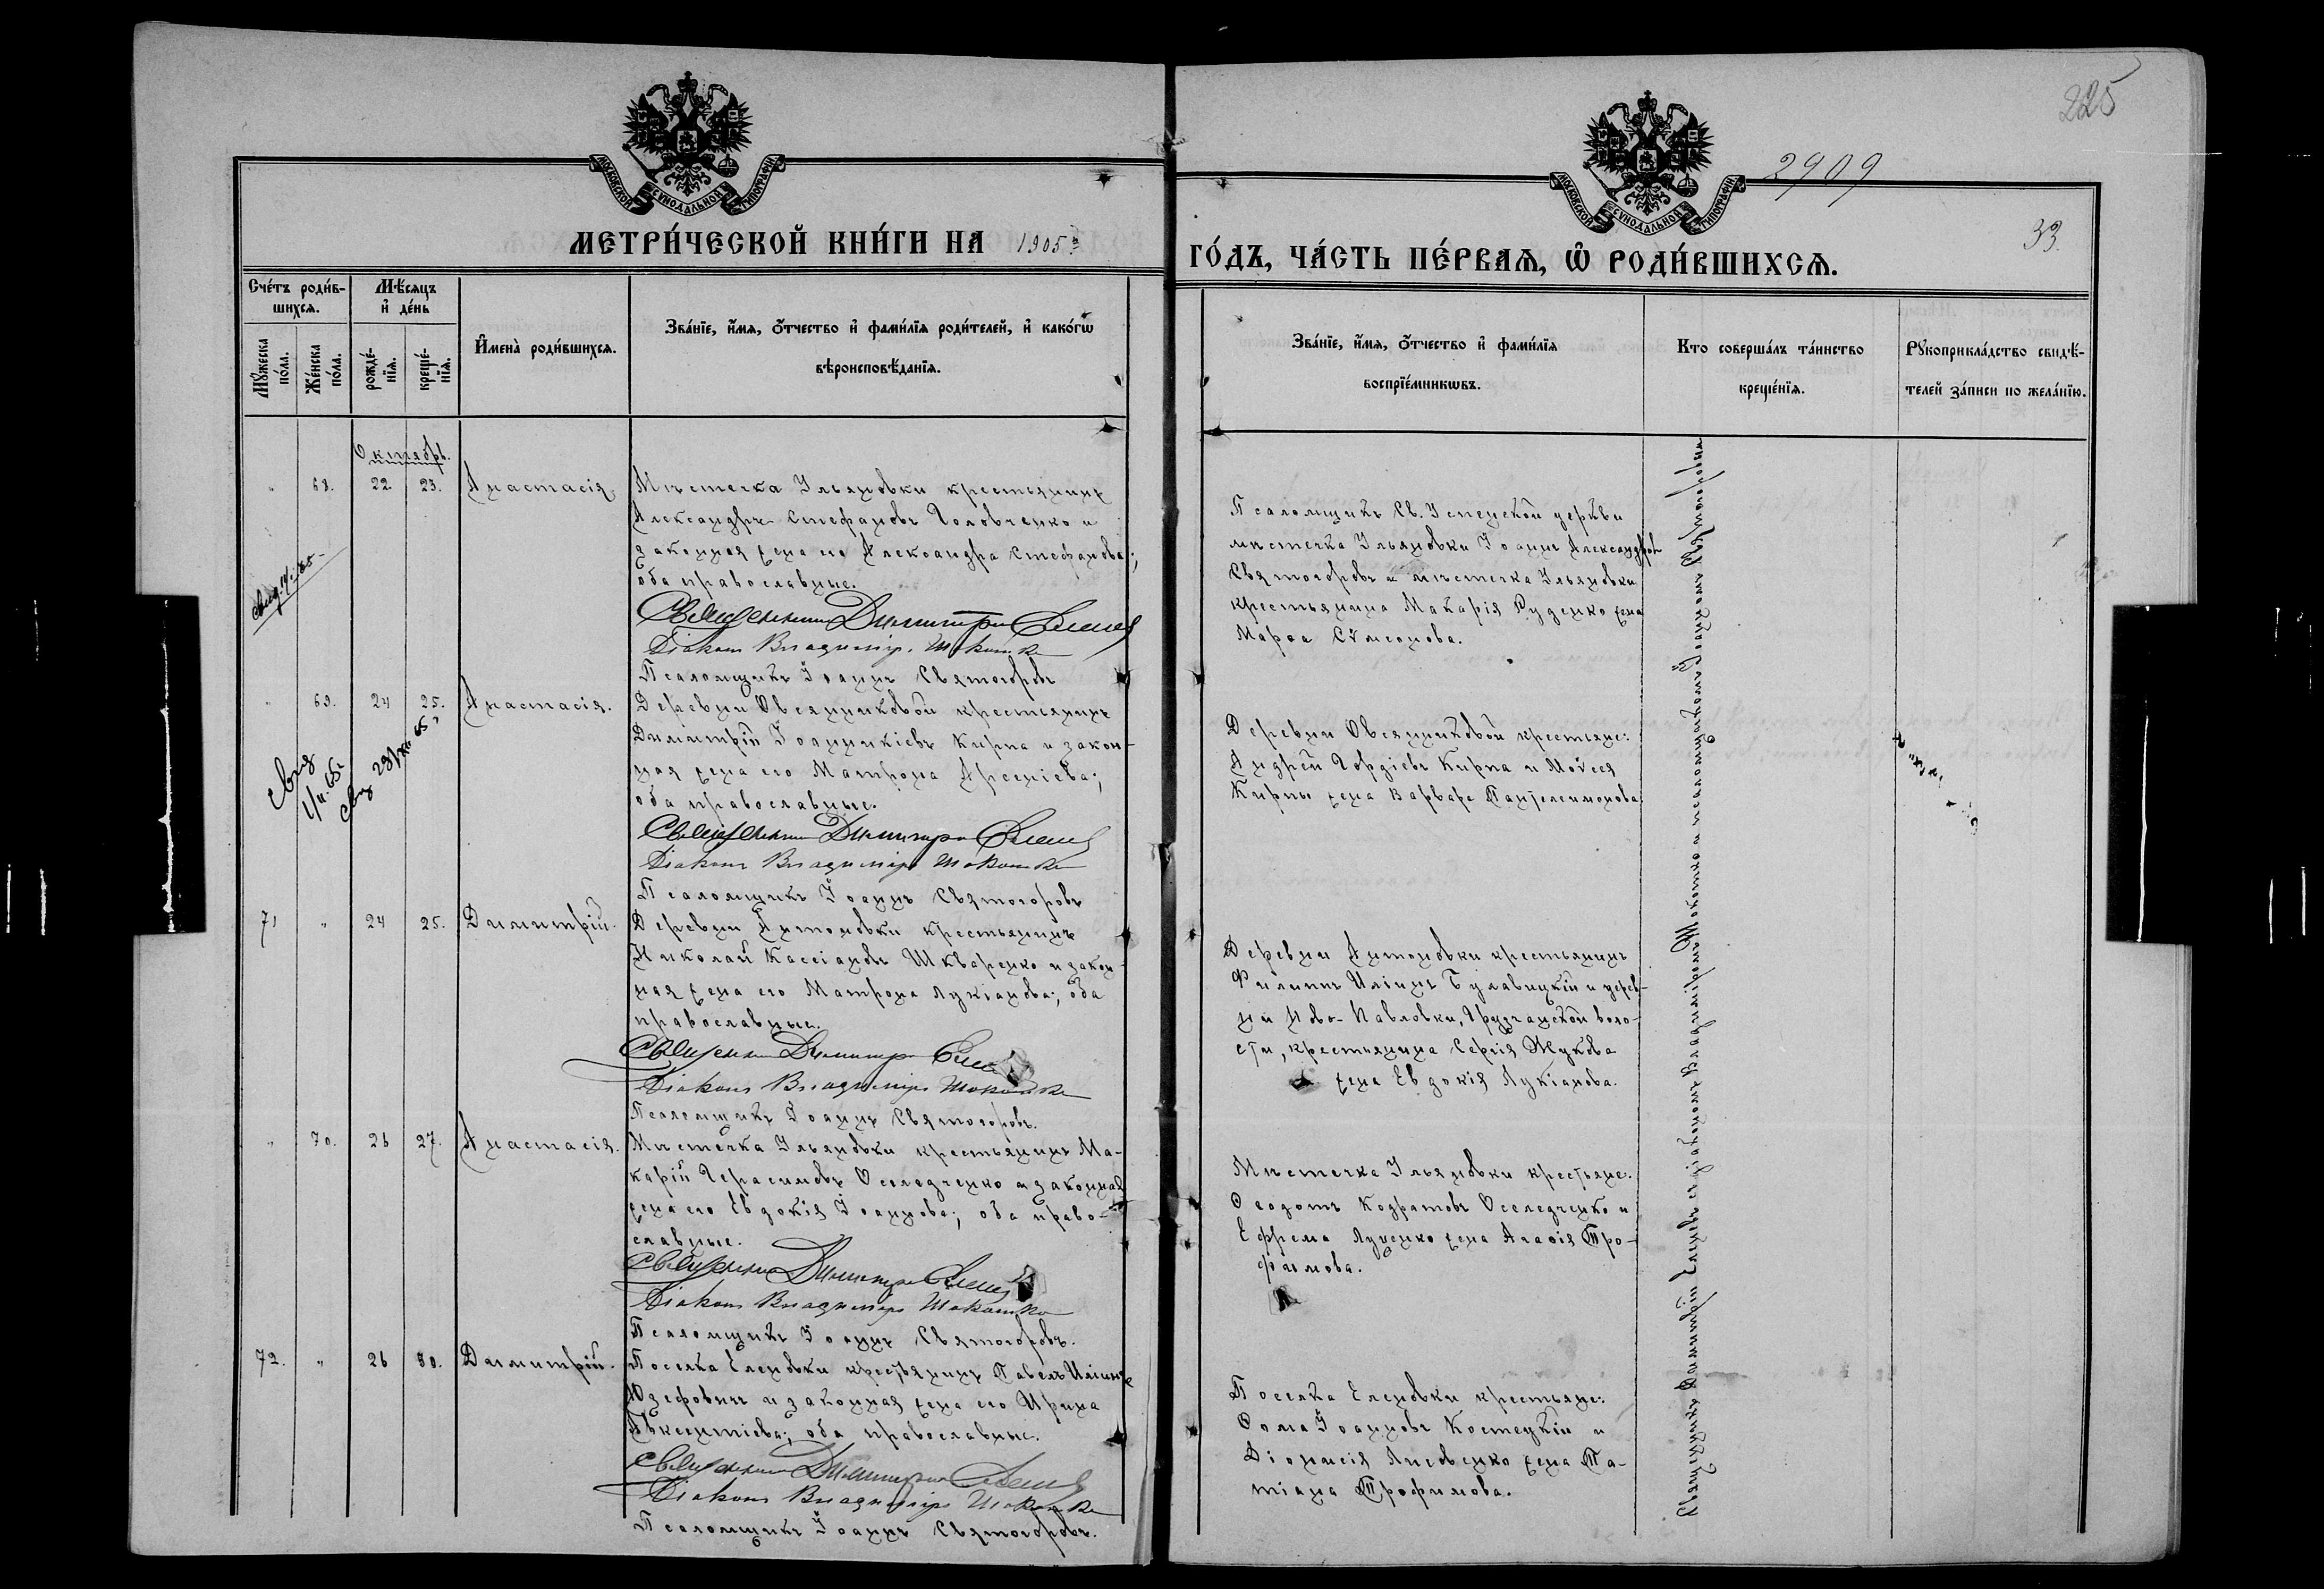 225
2909
33.
МОСКОВСКОЙ СѴНОДАЛЬНОЙ ТИПОГРАФІИ
МОСКОВСКОЙ СѴНОДАЛЬНОЙ ТИПОГРАФІИ
МЕТРИ́ЧЕСКОЙ КНИ́ГИ НА 1905й
ГО́ДЪ, ЧА́СТЬ ПЕ́РВАѦ, Ѡ҆ РОДИ́ВШИХСѦ.
Сче́тъ роди́в-
шихся.
Мѣ́сяцъ
и҆ де́нь
Мꙋ́жеска
по́ла.
Же́нска
по́ла.
рожде́-
нїя.
креще́-
нїя.
И҆мена̀ роди́вшихся.
Зва́нїе, и҆́мя, ѻ҆́тчество и҆ фами́лїя роди́телей, и҆ како́гѡ
вѣроисповѣ́данїя.
Зва́нїе, и҆́мя, ѻ҆́тчество и҆ фами́лїя
воспрїе́мникѡвъ.
Кто соверша́лъ та́инство
креще́нїя.
Рꙋкоприкла́дство свидѣ́-
телей за́писи по жела́нїю.
Октябрь.
" 68. 22 23. Анастасія.
Мѣстечка Ульяновки крестьянинъ
Александръ Стефановъ Головченко и
законная жена его Александра Стефанова;
оба православные.
Священникъ Димитрій Еленевъ
Діаконъ Владиміръ Шокотко
Псаломщикъ Іоаннъ Святогоровъ
Псаломщикъ Св. Успенской церкви
мѣстечка Ульяновки Іоаннъ Александровъ
Святогоровъ и мѣстечка Ульяновки
крестьянина Макарія Руденко жена
Марѳа Сѵмеонова.
" 69. 24 25. Анастасія.
Деревни Овсянниковой крестьянинъ
Димитрій Іоанникіевъ Кирпа и закон-
ная жена его Матрона Арсеніева;
оба православные.
Священникъ Димитрій Еленевъ
Діаконъ Владиміръ Шокотко
Псаломщикъ Іоаннъ Святогоровъ
Деревни Овсянниковой крестьяне:
Андрей Гордіевъ Кирпа и Моѵсея
Кирпы жена Варвара Пантелеимонова.
71 " 24 25. Димитрій.
Деревни Антоновки крестьянинъ
Николай Кассіановъ Шкваренко и закон-
ная жена его Матрона Лукіанова; оба
православные.
Священникъ Димитрій Еленевъ
Діаконъ Владиміръ Шокотко
Псаломщикъ Іоаннъ Святогоровъ.
Деревни Антоновки крестьянинъ
Филиппъ Иліинъ Булавицкій и дерев-
ни Ново-Павловки, волос-
сти, крестьянина Сергія Жукова
жена Евдокія Лукіанова.
" 70. 26 27. Анастасія.
Мѣстечка Ульяновки крестьянинъ Ма-
карій Герасимовъ Оселедченко и законная
жена его Евдокія Іоаннова; оба право-
славные.
Священникъ Димитрій Еленевъ
Діаконъ Владиміръ Шокотко
Псаломщикъ Іоаннъ Святогоровъ.
Мѣстечка Ульяновки крестьяне:
Ѳеодотъ Кодратовъ Оселедченко и
Ефрема Луценко жена Агаѳія Тро-
фимова.
72. " 26 30. Димитрій.
Поселка Еленовки крестьянинъ Павелъ Иліинъ
Юзефовичъ и законная жена его Ирина
Авксентіева; оба православные.
Священникъ Димитрій Еленевъ
Діаконъ Владиміръ Шокотко
Псаломщикъ Іоаннъ Святогоровъ.
Поселка Еленовки крестьяне:
Ѳома Іоанновъ Костецкій и
Діонисія Лисовенко жена Та-
тіана Трофимова.
Священникъ Димитрій Еленевъ съ діакономъ Владиміромъ Шокотко и псаломщикомъ Іоанномъ Святогоровымъ